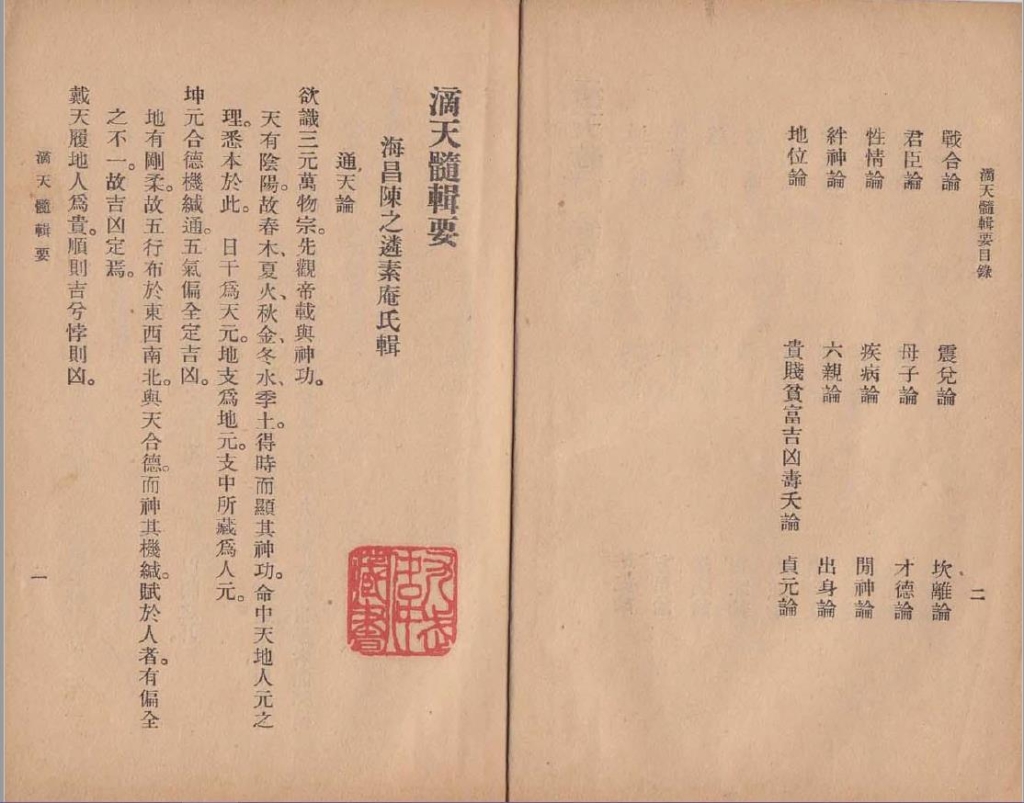 滴天髓輯要目錄 二
戰合論 震兌論 坎離論
君臣論 母子論 才德論
性情論 疾病論 閒神論
絆神論 六親論 出身論
地位論 貴賤貧富吉凶壽夭論 貞元論
滴天髓輯要
海昌陳之遴素庵氏輯
通天論
欲識三元萬物宗。先觀帝載與神功。
天有陰陽。故春木、夏火、秋金、冬水、季土。得時而顯其神功。命中天地人元之
理。悉本於此。 日干爲天元。地支爲地元。支中所藏爲人元。
坤元合德機緘通。五氣偏全定吉凶。
地有剛柔。故五行布於東西南北。與天合德。而神其機緘。賦於人者。有偏全
之不一。故吉凶定焉。
戴天履地人爲貴。順則吉兮悖則凶。
滴天髓輯要 一
藏書